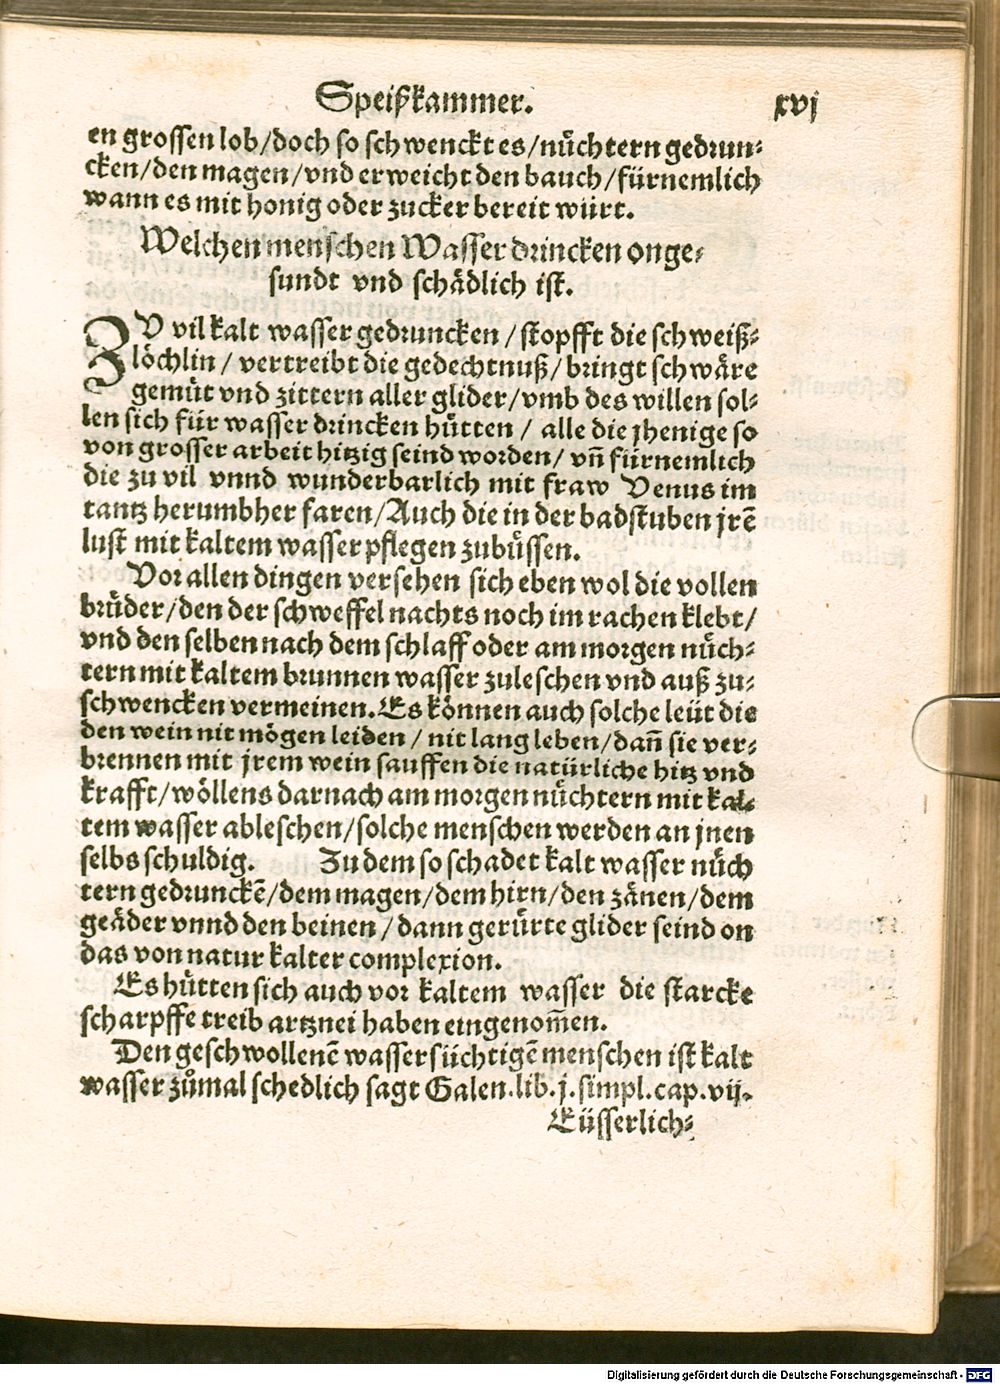 Speißkammer. xvj
en grossen lob/doch so schwenckt es/nüchtern gedrun⸗
cken/den magen/vnd erweicht den bauch/fürnemlich
wann es mit honig oder zucker bereit würt.
Welchen menschen Wasser drincken onge⸗
sundt vnd schädlich ist.
ZV vil kalt wasser gedruncken/stopfft die schweiß⸗
löchlin/vertreibt die gedechtnuß/bringt schwäre
gemüt vnd zittern aller glider/vmb des willen sol⸗
len sich für wasser drincken hütten/alle die jhenige so
von grosser arbeit hitzig seind worden/vñ fürnemlich
die zu vil vnnd wunderbarlich mit fraw Venus im
tantz herumbher faren/Auch die in der badstuben jrẽ
lust mit kaltem wasser pflegen zubüssen.
Vor allen dingen versehen sich eben wol die vollen
brüder/den der schweffel nachts noch im rachen klebt/
vnd den selben nach dem schlaff oder am morgen nüch⸗
tern mit kaltem brunnen wasser zuleschen vnd auß zu⸗
schwencken vermeinen. Es können auch solche leüt die
den wein nit mögen leiden/nit lang leben/dañ sie ver⸗
brennen mit jrem wein sauffen die natürliche hitz vnd
krafft/wöllens darnach am morgen nüchtern mit kal⸗
tem wasser ableschen/solche menschen werden an jnen
selbs schuldig. Zu dem so schadet kalt wasser nüch
tern gedrunckẽ/dem magen/dem hirn/den zänen/dem
geäder vnnd den beinen/dann gerürte glider seind on
das von natur kalter complexion.
Es hütten sich auch vor kaltem wasser die starcke
scharpffe treib artznei haben eingenom̃en.
Den geschwollenẽ wassersüchtigẽ menschen ist kalt
wasser zůmal schedlich sagt Galen.lib.j.simpl.cap.vij.
Eüsserlich⸗
Digitalisierung gefördert durch die Deutsche Forschungsgemeinschaft - DFG